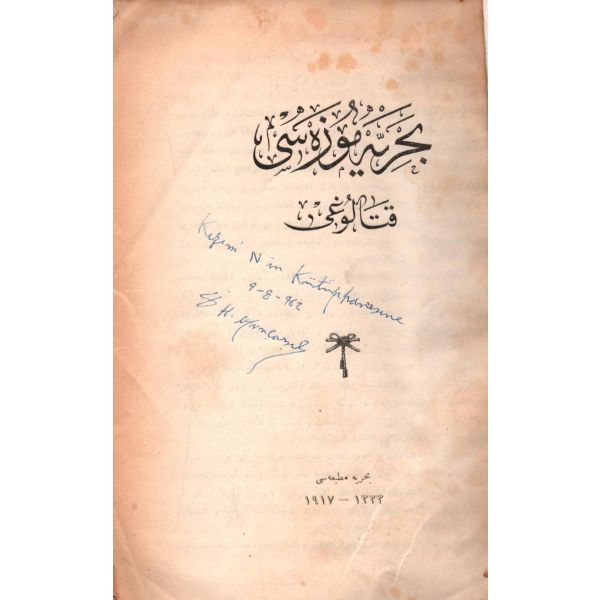 بحریّه موزه سی
قتالوغی
Kızım N in Kütüphanesine
9-8-962
H.
بحریه مطبعه سی
۱۹۱۷ — ۱۳۳۳